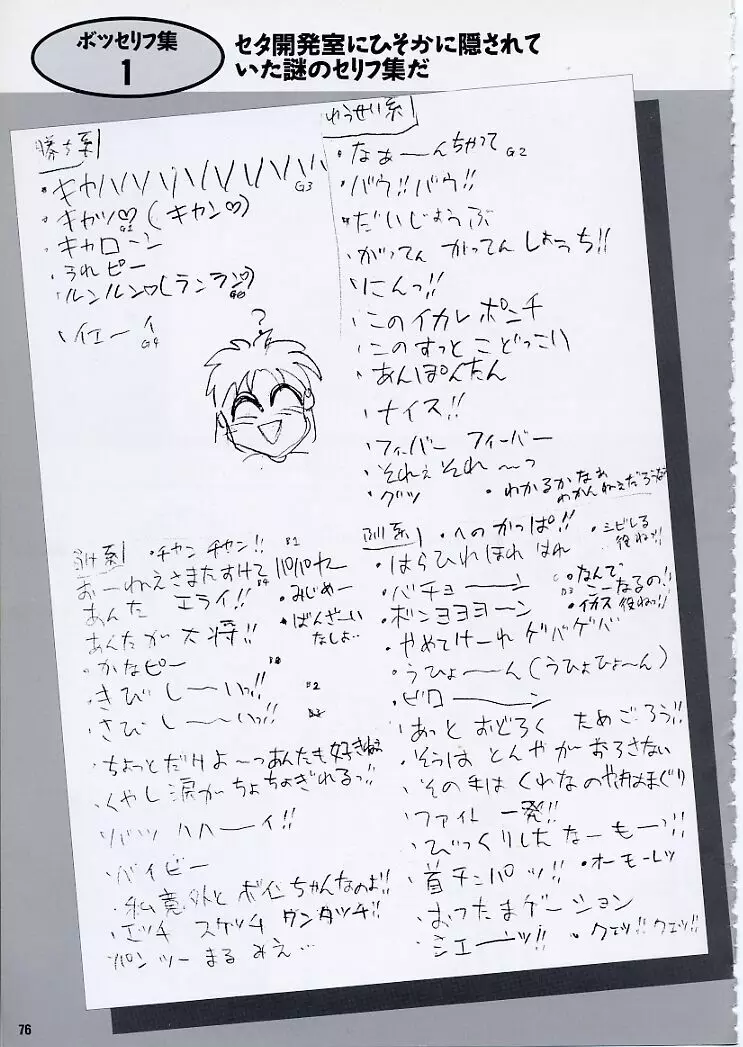 ボツセリフ集
1
セタ開発室にひそかに隠されて
いた謎のセリフ集だ
勝ち系
・キャハハハハハハハハハ G3
・キャッ♡(キャン♡)
・キャローン
・うれピー
・ルンルン♡(ランラン♡)
・イエーイ G4
?
ゆうせい系
・なぁーんちゃって G2
・バウ!!バウ!!
・だいじょうぶ
・がってん がってん しょうち!!
・にんっ!!
・このイカレ ポンチ
・このすっとこどっこい
・あんぽんたん
・ナイス!!
・フィーバー フィーバー
・それぇ それ 〜っ
・グッ
・わかるかなぁ
わかんねぇだろうなぁ
負け系
・チャン チャン!! B1
おーねえさまたすけて B4
あんた エライ!!
・みじめー
あんたが大将!!
・ばんざーい
なしよ…
・かなピー
・きびしーいっ!! B2
・さびしーいっ!!
・ちょっとだけよ〜っあんたも好きねぇ
・くやし涙がちょちょぎれるっ!!
・バイビー
・私意外とボインちゃんなのよ!!
・エッチ スケッチ ワンタッチ!!
パンツーまるみえ…
・へのかっぱ!!
・シビレる
役ね!!
・はらひれほれはれ
・バチョーーン
・なんで
こーなるの!!
・イカス役ねっ!!
・ボンヨヨヨーン
・やめてけーれ ゲバゲバ
・うひょーーん(うひょひょ〜ん)
・ビローーーン
・あっと おどろく ためごろう!!
・そうは とんやが おろさない
・その手は くわなの 焼はまぐり
・ファイト 一発!!
・びっくりしたなーもーっ!!
・首チョンパッ!!
・オーモーレツ
・おったまゲーション
・シェーーッ!!
・クエッ!!クエッ!!
76